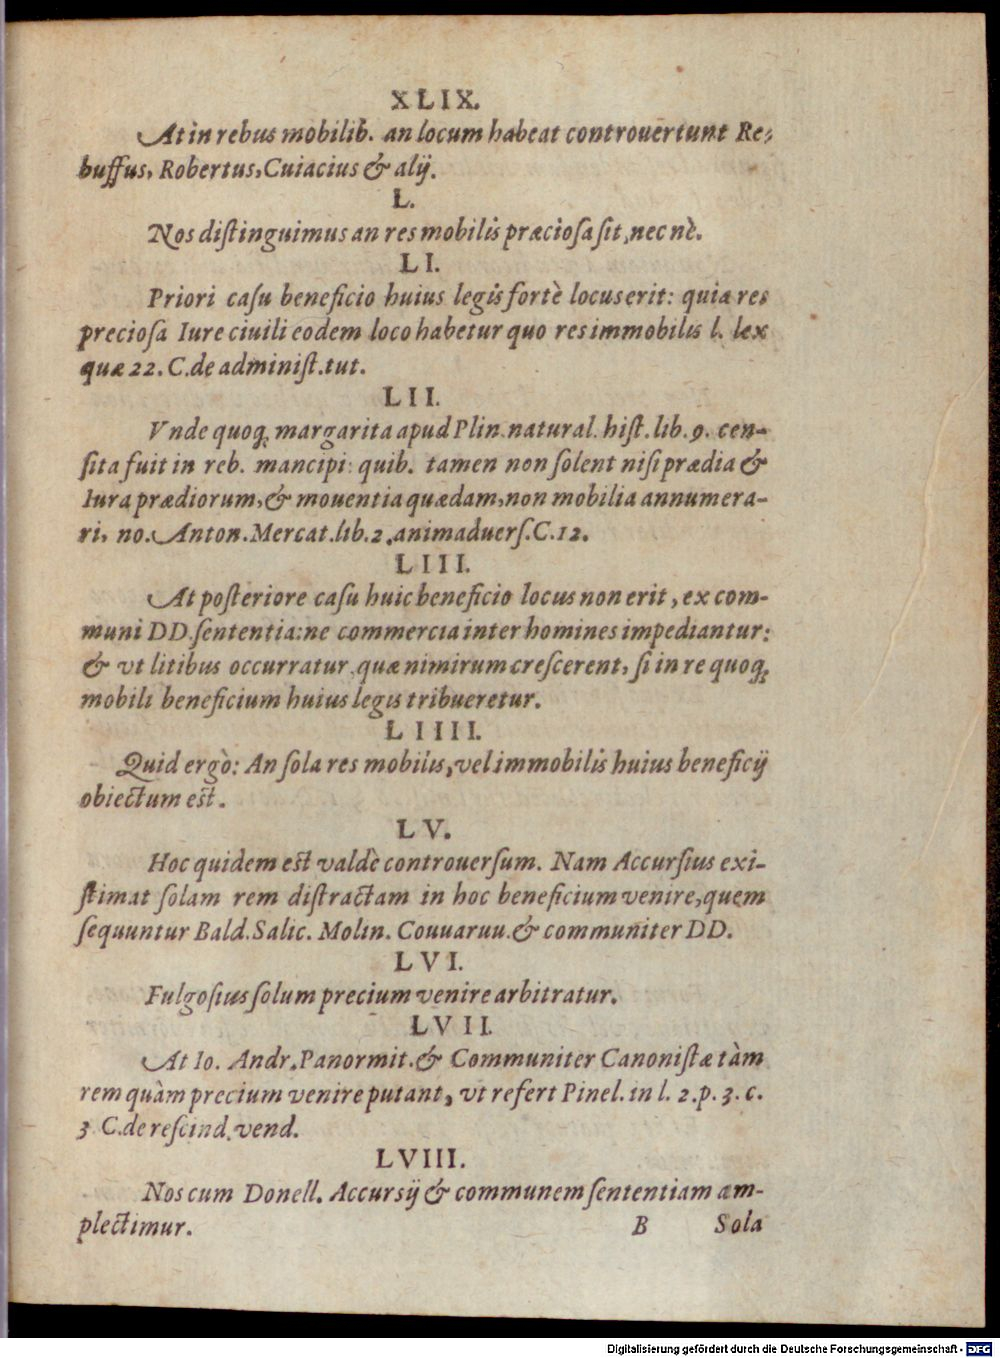 XLIX.
At in rebus mobilib. an locum habeat controuertunt Re-
buffus, Robertus, Cuiacius & alij.
L.
Nos distinguimus an res mobilis præciosa sit, nec nè.
LI.
Priori casu beneficio huius legis fortè locus erit: quia res
preciosa Iure ciuili eodem loco habetur quo res immobilis l. lex
quæ 22. C. de administ. tut.
LII.
Vnde quoq; margarita apud Plin. natural. hist. lib. 9. cen-
sita fuit in reb. mancipi: quib. tamen non solent nisi prædia &
Iura prædiorum, & mouentia quædam, non mobilia annumera-
ri, no. Anton. Mercat. lib. 2. animaduers. C. 12.
LIII.
At posteriore casu huic beneficio locus non erit, ex com-
muni DD. sententia: ne commercia inter homines impediantur:
& vt litibus occurratur, quæ nimirum crescerent, si in re quoq;
mobili beneficium huius legis tribueretur.
LIIII.
Quid ergò: An sola res mobilis, vel immobilis huius beneficij
obiectum est.
LV.
Hoc quidem est valdè controuersum. Nam Accursius exi-
stimat solam rem distractam in hoc beneficium venire, quem
sequuntur Bald. Salic. Molin. Couuaruu. & communiter DD.
LVI.
Fulgosius solum precium venire arbitratur.
LVII.
At Io. Andr. Panormit. & Communiter Canonistæ tàm
rem quàm precium venire putant, vt refert Pinel. in l. 2. p. 3. c.
3 C. de rescind. vend.
LVIII.
Nos cum Donell. Accursij & communem sententiam am-
plectimur.
B Sola
Digitalisierung gefördert durch die Deutsche Forschungsgemeinschaft - DFG